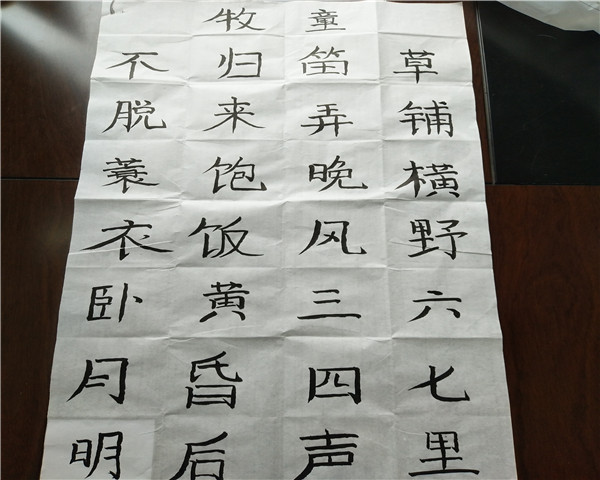 牧童
草铺横野六七里
笛弄晚风三四声
归来饱饭黄昏后
不脱蓑衣卧月明